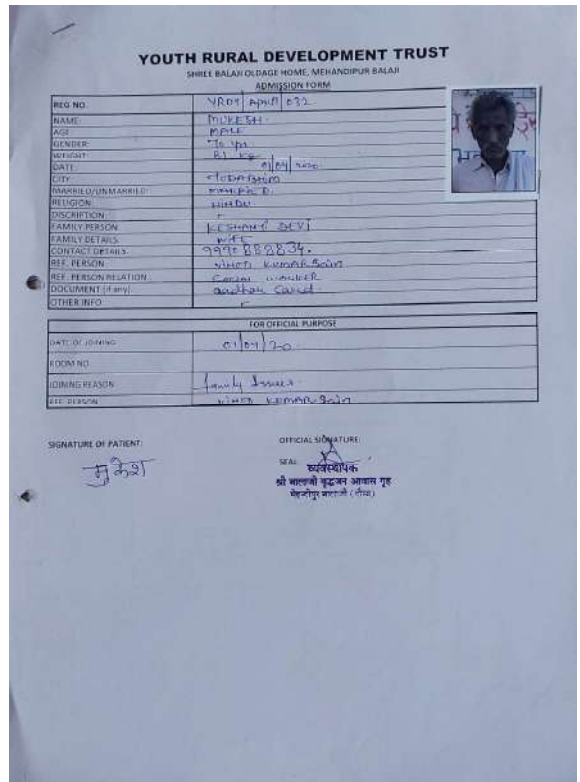 YOUTH RURAL DEVELOPMENT TRUST
SHREE BALAJI OLDAGE HOME, MEHANDIPUR BALAJI
ADMISSION FORM
REG NO. YRDT/April/032
NAME: MUKESH
AGE MALE
GENDER: 70 yrs.
WEIGHT: 81 kg
DATE: 01/04/2020
CITY: TODABHIM
MARRIED/UNMARRIED: MARRIED.
RELIGION: HINDU
DISCRIPTION:
FAMILY PERSON KESHANTI DEVI
FAMILY DETAILS: WIFE
CONTACT DETAILS: 9990888834.
REF. PERSON VINOD KUMAR Sain
REF. PERSON RELATION: SOCIAL WORKER
DOCUMENT (if any) aadhar Card
OTHER INFO
FOR OFFICIAL PURPOSE
DATE OF JOINING 01/04/20
ROOM NO
JOINING REASON family Issues
REF. PERSON VINOD KUMAR Sain
SIGNATURE OF PATIENT: OFFICIAL SIGNATURE:
मुकेश
SEAL व्यवस्थापक
श्री बालाजी वृद्धजन आवास गृह
मेहन्दीपुर बालाजी (दौसा)